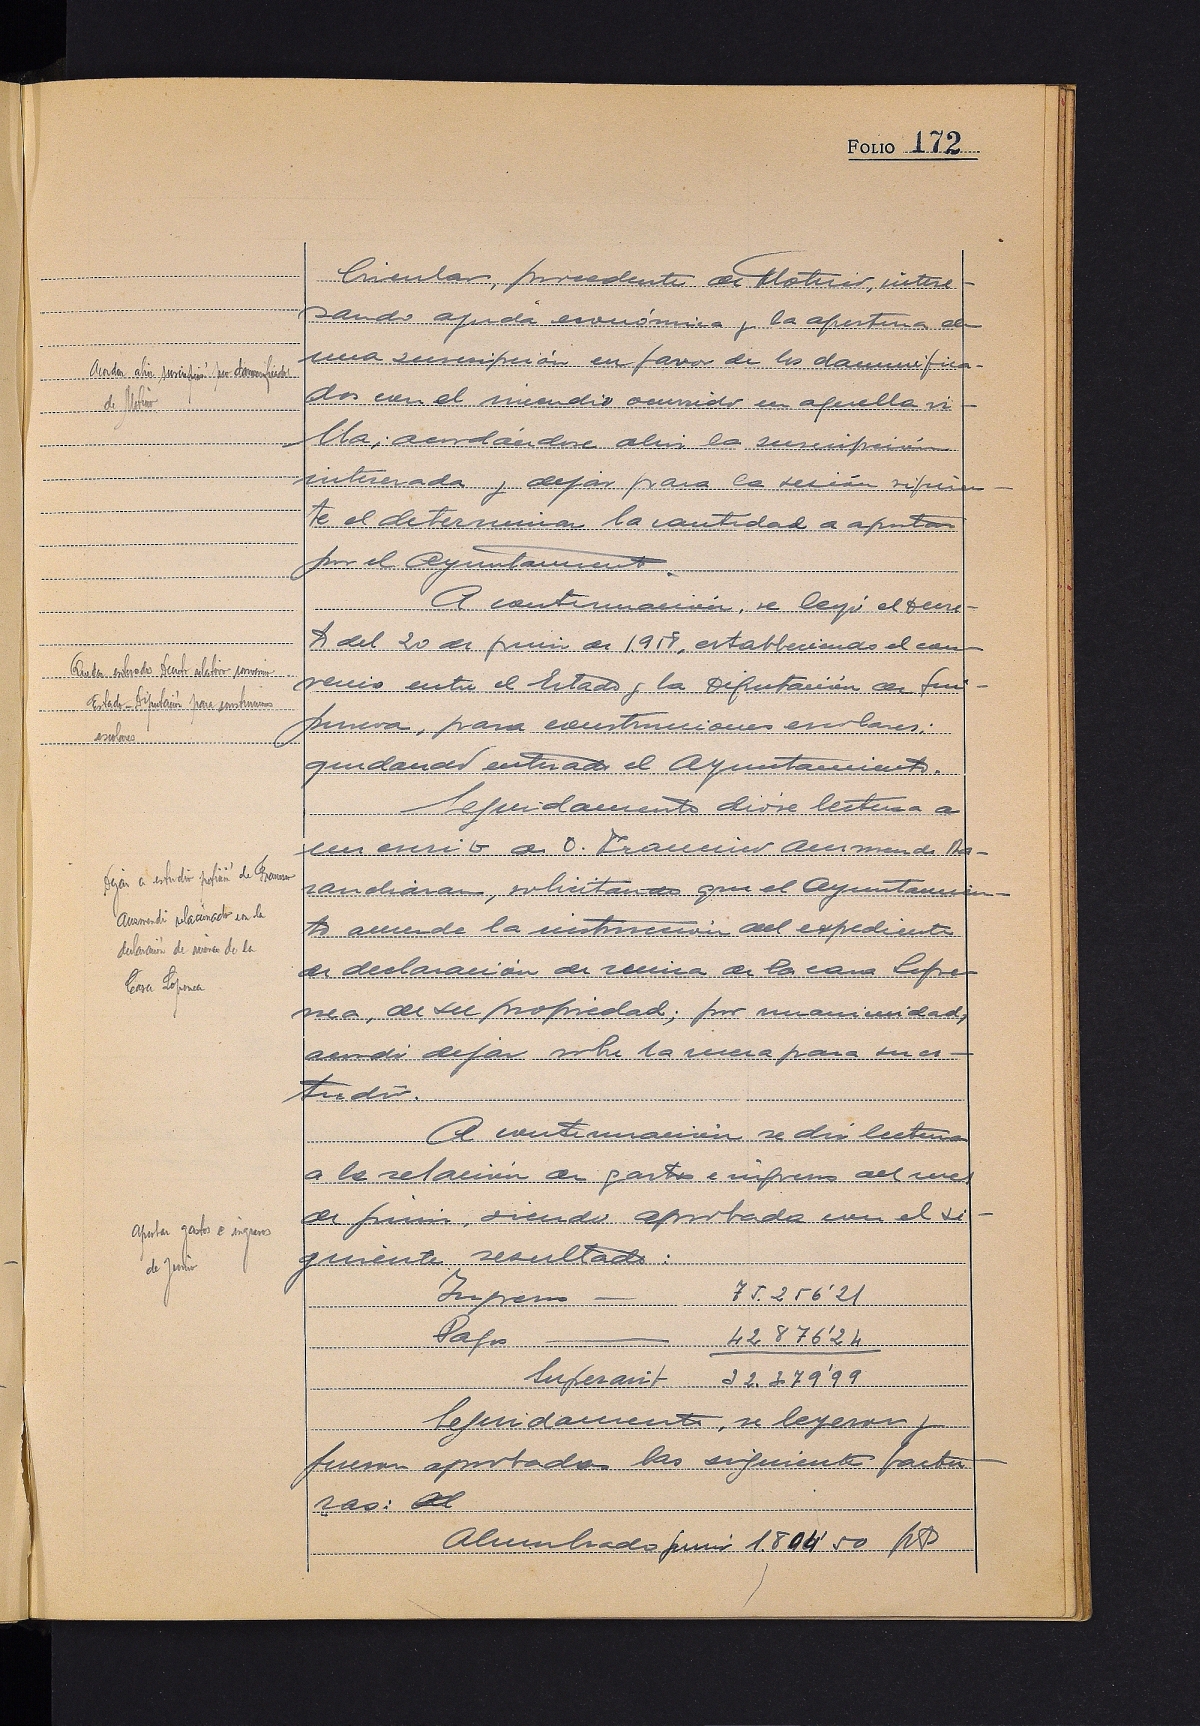 FOLIO 172
Circular, procedente de Motrico, intere-
sando ayuda económica y la apertura de
una suscripción en favor de los damnifica-
dos con el incendio ocurrido en aquella vi-
lla; acordándose abrir la suscripción
interesada y dejar para la sesión siguien-
te el determinar la cantidad a aportar
por el Ayuntamiento.
Acordar abrir suscripción pro damnificados
de Motrico
A continuación, se leyó el Decre-
to del 20 de junio de 1958, estableciendo el con-
venio entre el Estado y la Diputación de Gui-
púzcoa, para construcciones escolares;
quedando enterado el Ayuntamiento.
Quedar enterado Decreto relativo convenio
Estado-Diputación para construcciones
escolares
Seguidamente dióse lectura a
un escrito de D. Francisco Auzmendi
solicitando que el Ayuntamien-
to acuerde la instrucción del expediente
de declaración de ruina de la casa
de su propiedad; por unanimidad,
acordó dejar sobre la mesa para su es-
tudio.
Dejar a estudio petición de Francisco
Auzmendi relacionado con la
declaración de ruina de la
Casa
A continuación se dió lectura
a la relación de gastos e ingresos del mes
de junio, siendo aprobada con el si-
guiente resultado:
Aprobar gastos e ingresos
de Junio
Ingresos — 75.256'21
Pagos — 42.876'24
Superavit 32.379'99
Seguidamente, se leyeron y
fueron aprobadas las siguientes factu-
ras:
Alumbrado junio 1.804'50 pts